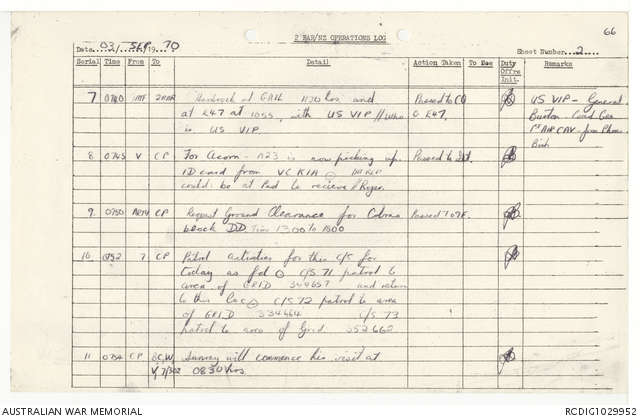 66
2 RAR/NZ OPERATIONS LOG
Date 03/ SEP /19 70
Sheet Number 2
Serial Time From To Detail Action Taken To Duty Offrs Init. Remarks
7 0740 1ATF 2RAR at GRIL 1130 hrs. and Passed to CO US VIP - General
at E47 at 1055, with US VIP // Who O E47. Burton Comd Gen
is US VIP 1st AIR CAV - from Phuoc
Binh
8 0745 V CP For Acorn - A23 is now picking up Passed to Int.
ID card from VC KIA
could be at Pad to recieve // Roger.
9 0750 ARTY CP Request Ground Clearance for Cobra
block DD Time 1300 to 1800
10 0752 7 CP Patrol activities for this C/S for
today as fol C/S 71 patrol to
area of GRID 344657 and return
to this loc C/S 72 patrol to area
of GRID 334664 C/S 73
patrol to area of Grid 352662
11 0754 CP Sunray will commence his visit at
0830 hrs.
AUSTRALIAN WAR MEMORIAL
RCDIG1029952